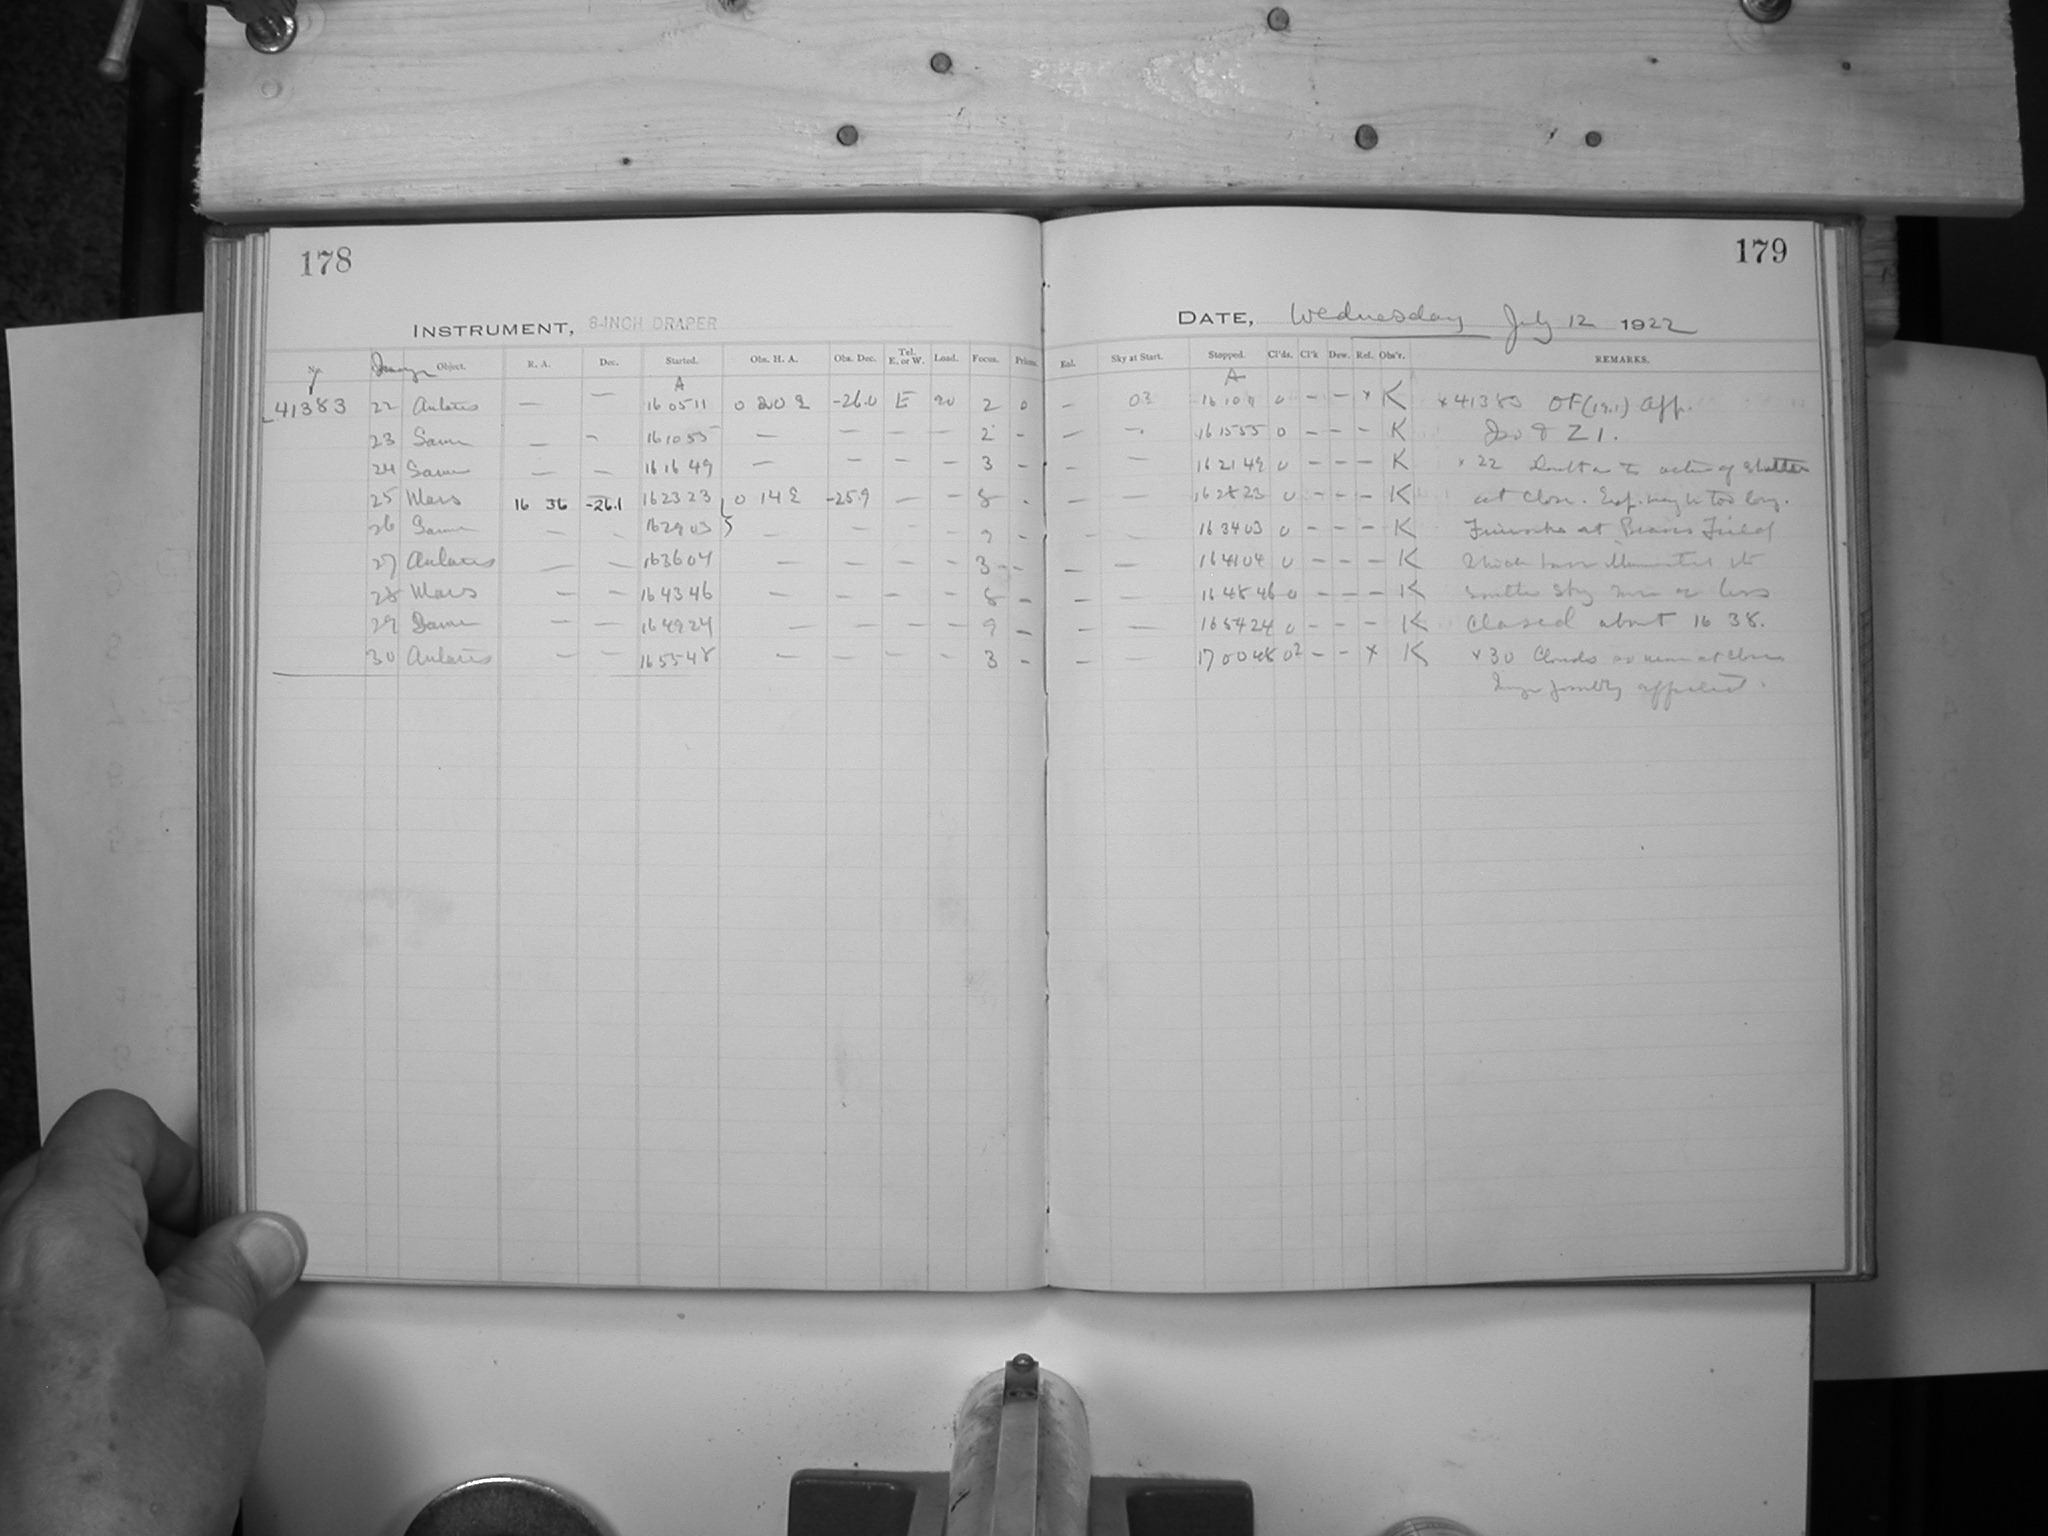 178
179
INSTRUMENT, 8-INCH DRAPER
DATE, Wednesday July 12 1922
No. Image Object. R. A. Dec. Started. Obs. H. A. Obs. Dec. Tel. E. or W. Load. Focus. Prism. Enl. Sky at Start. Stopped. Cl'ds. Cl'k Dew. Ref. Obs'r. REMARKS.
A A
41383 22 Antares — — 16 05 11 0 20 E -26.0 E 20 2 0 — 03 16 10 11 0 — — x K x 41383 OF (19.1) App.
23 Same — — 16 10 55 — — — — 2 — — — 16 15 55 0 — — — K Iso & Z 1.
24 Same — — 16 16 49 — — — — 3 — — — 16 21 49 0 — — — K x 22 Doubt as to action of shutter
25 Mars 16 36 -26.1 16 23 23 0 14 E -25.9 — — 8 — — — 16 28 23 0 — — — K at close. Exp. may be too long.
26 Same — — 16 29 03 — — — — 9 — — — 16 34 03 0 — — — K Fireworks at Braves Field
27 Antares — — 16 36 04 — — — — 3 — — — 16 41 04 0 — — — K which have illuminated the
28 Mars — — 16 43 46 — — — — 8 — — — 16 48 46 0 — — — K southern sky more or less
29 Same — — 16 49 24 — — — — 9 — — — 16 54 24 0 — — — K closed about 16 38.
30 Antares — — 16 55 48 — — — — 3 — — — 17 00 48 02 — — x K x 30 Clouds so near at close
Image possibly affected.